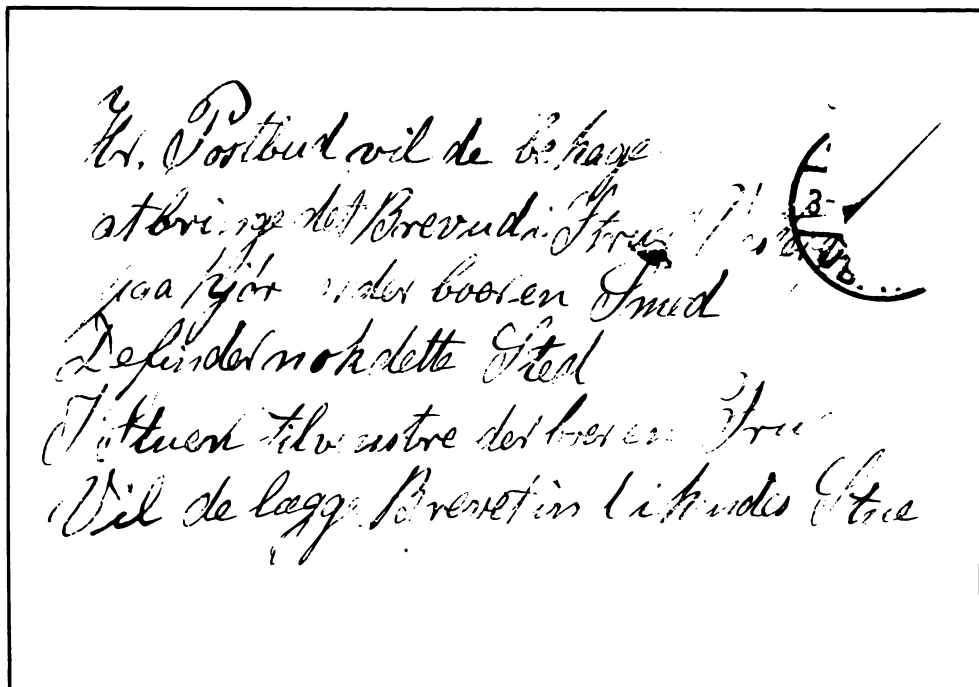 Hr. Postbud vil de behage
at bringe det Brev ud i
paa hjør der boer en Smed
De finder nok dette Sted
Stuen til venstre der boer en Fru
Vil de lægge Brevet in i hendes Stue